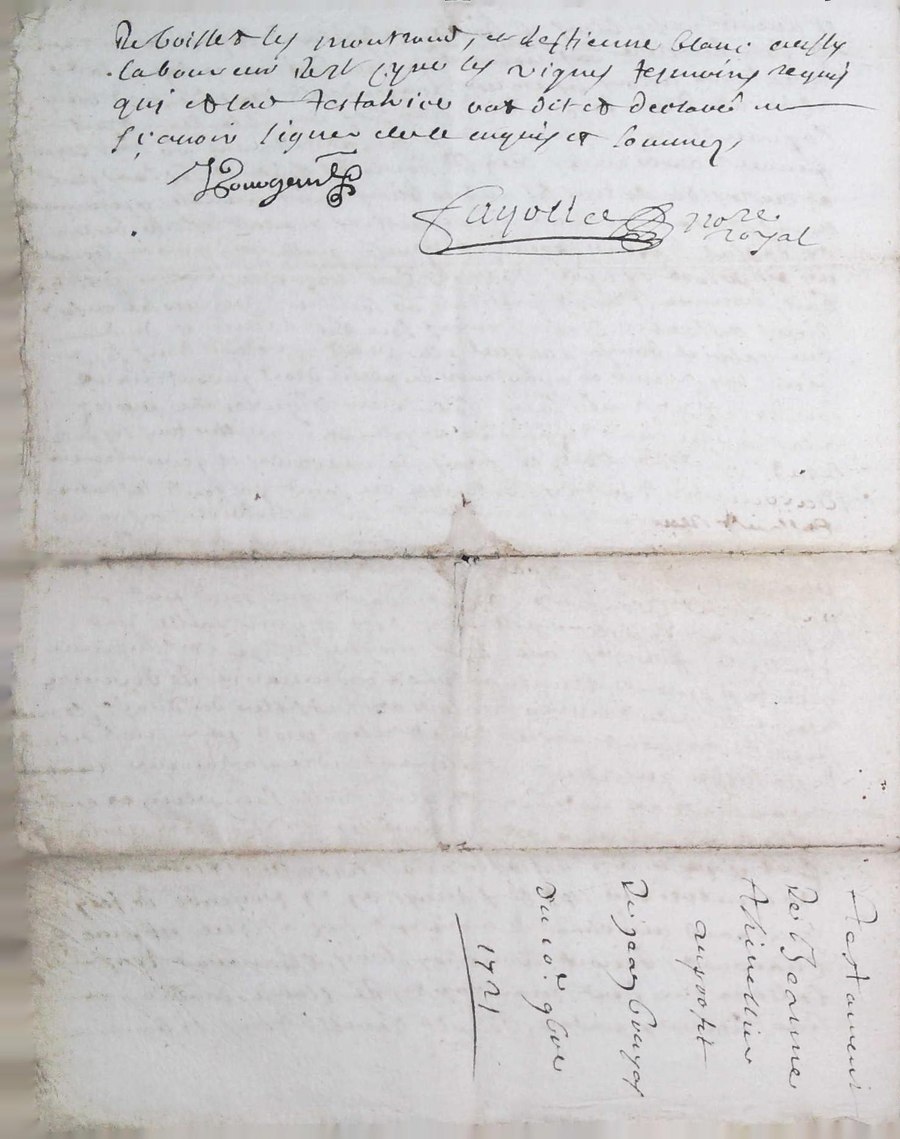 De boisset les montrond, et d'estienne blanc aussy
laboureur de st cyr les vignes tesmoins requis
qui et lad testatrice ont dit et declaré ne
sçavoir signer de ce enquis et sommez
Bourgeui
fayolle nore
royal
Testament
De Jeanne
Thinellier
au proffit
De jean
Du 10e 9bre
1721